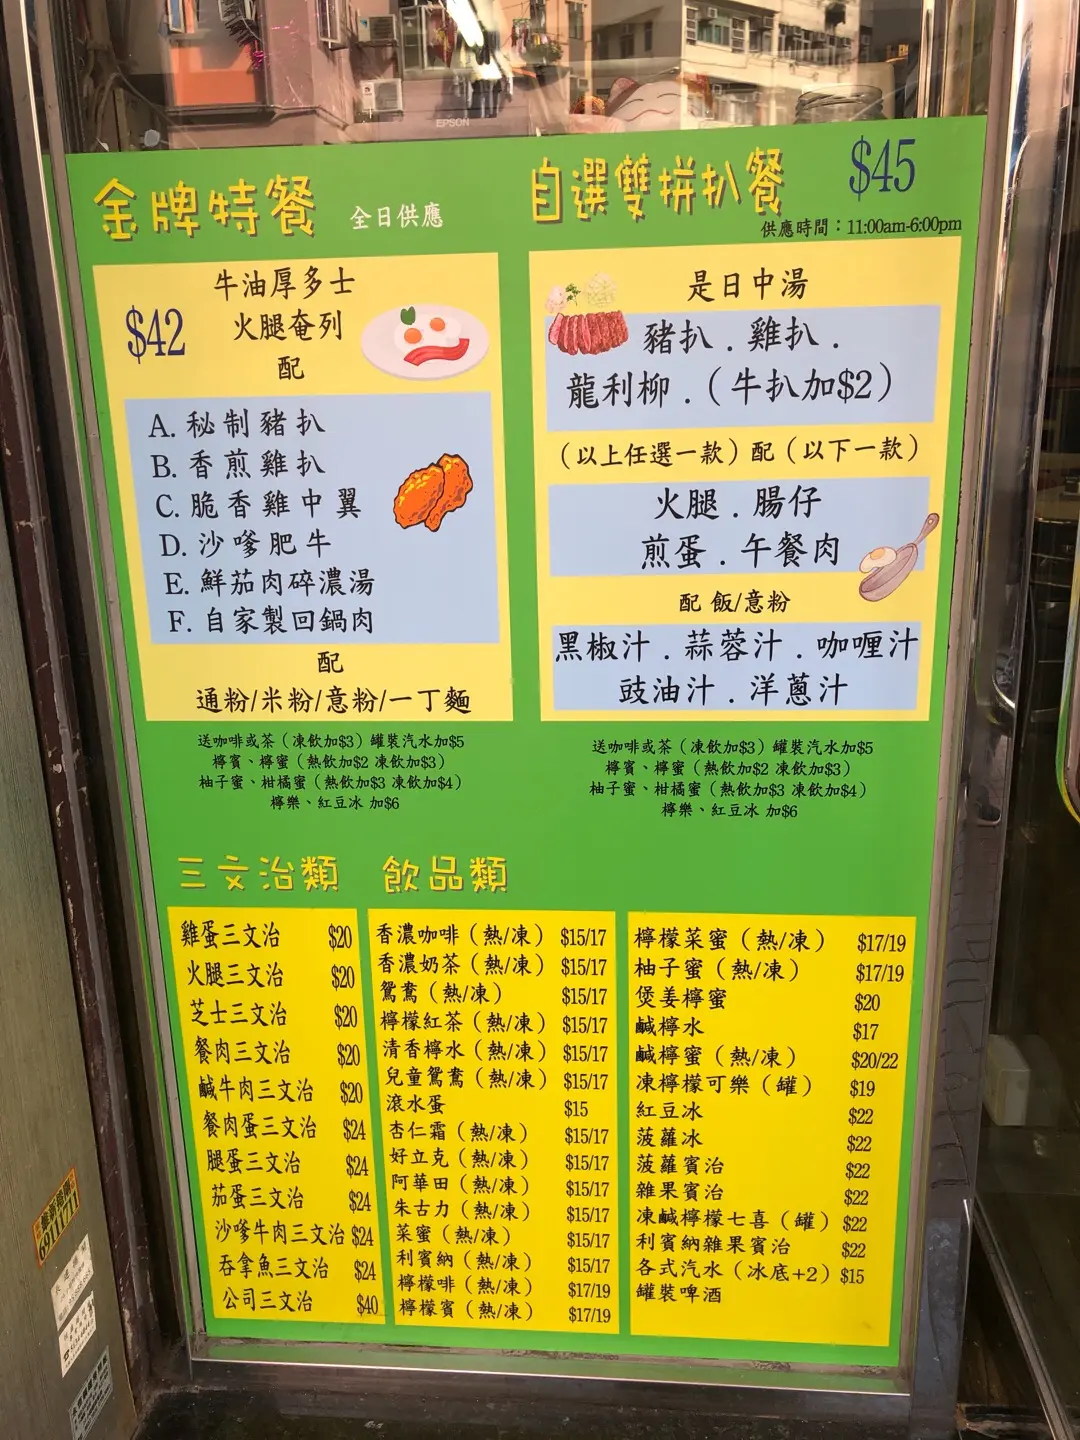 EPSON
金牌特餐 全日供應
牛油厚多士
$42 火腿奄列
配
A. 秘制豬扒
B. 香煎雞扒
C. 脆香雞中翼
D. 沙嗲肥牛
E. 鮮茄肉碎濃湯
F. 自家製回鍋肉
配
通粉/米粉/意粉/一丁麵
送咖啡或茶（凍飲加$3）罐裝汽水加$5
檸賓、檸蜜（熱飲加$2 凍飲加$3）
柚子蜜、柑橘蜜（熱飲加$3 凍飲加$4）
檸樂、紅豆冰 加$6
自選雙拼扒餐 $45
供應時間：11:00am-6:00pm
是日中湯
豬扒．雞扒．
龍利柳．（牛扒加$2）
（以上任選一款）配（以下一款）
火腿．腸仔
煎蛋．午餐肉
配 飯/意粉
黑椒汁．蒜蓉汁．咖喱汁
豉油汁．洋蔥汁
送咖啡或茶（凍飲加$3）罐裝汽水加$5
檸賓、檸蜜（熱飲加$2 凍飲加$3）
柚子蜜、柑橘蜜（熱飲加$3 凍飲加$4）
檸樂、紅豆冰 加$6
三文治類
雞蛋三文治 $20
火腿三文治 $20
芝士三文治 $20
餐肉三文治 $20
鹹牛肉三文治 $20
餐肉蛋三文治 $24
腿蛋三文治 $24
茄蛋三文治 $24
沙嗲牛肉三文治 $24
吞拿魚三文治 $24
公司三文治 $40
飲品類
香濃咖啡（熱/凍） $15/17
香濃奶茶（熱/凍） $15/17
鴛鴦（熱/凍） $15/17
檸檬紅茶（熱/凍） $15/17
清香檸水（熱/凍） $15/17
兒童鴛鴦（熱/凍） $15/17
滾水蛋 $15
杏仁霜（熱/凍） $15/17
好立克（熱/凍） $15/17
阿華田（熱/凍） $15/17
朱古力（熱/凍） $15/17
菜蜜（熱/凍） $15/17
利賓納（熱/凍） $15/17
檸檬啡（熱/凍） $17/19
檸檬賓（熱/凍） $17/19
檸檬菜蜜（熱/凍） $17/19
柚子蜜（熱/凍） $17/19
煲姜檸蜜 $20
鹹檸水 $17
鹹檸蜜（熱/凍） $20/22
凍檸檬可樂（罐） $19
紅豆冰 $22
菠蘿冰 $22
菠蘿賓治 $22
雜果賓治 $22
凍鹹檸檬七喜（罐） $22
利賓納雜果賓治 $22
各式汽水（冰底+2） $15
罐裝啤酒